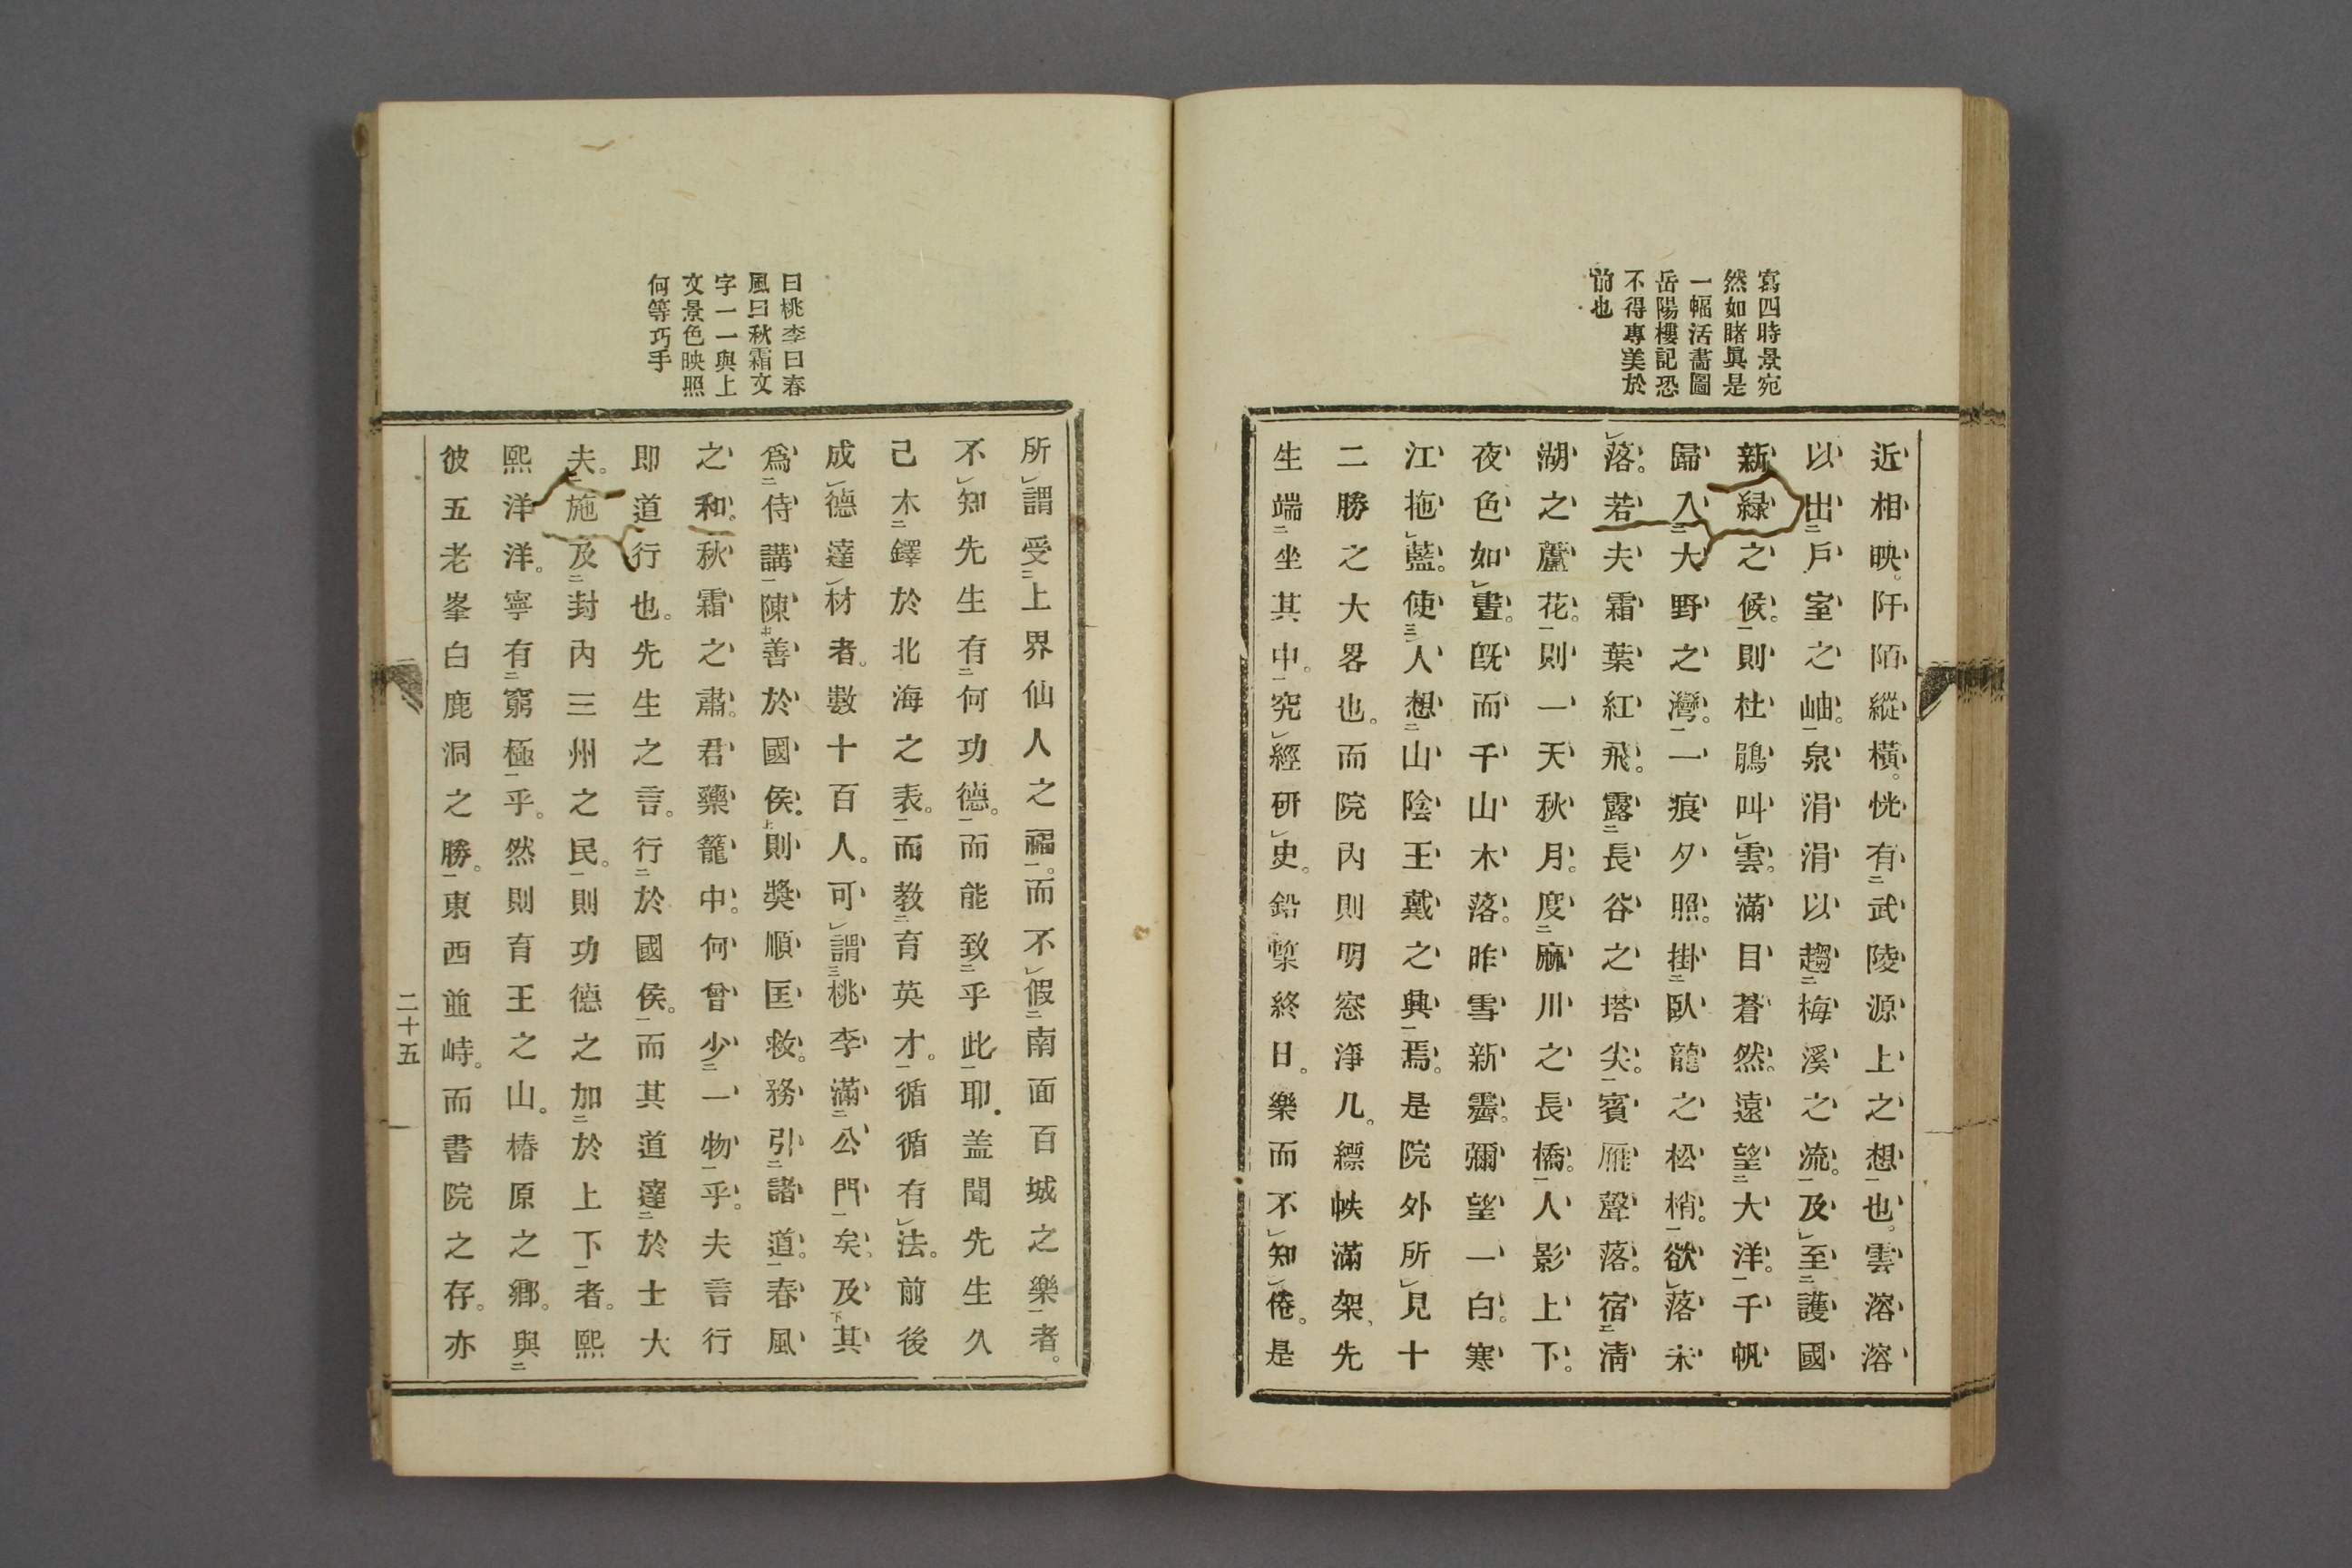 寫四時景宛
然如睹眞是
一幅活畵圖
岳陽樓記恐
不得專美於
前也
近相映。阡陌縱橫。恍有二武陵源上之想一也。雲溶溶
以出二戶室之岫一。泉涓涓以趨二梅溪之流一。及レ至二護國
新綠之候一。則杜鵑叫レ雲。滿目蒼然。遠望二大洋一。千帆
歸二入大野之灣一。一痕夕照。掛二臥龍之松梢一。欲レ落未
レ落。若夫霜葉紅飛。露二長谷之塔尖一。賓雁聲落。宿二淸
湖之蘆花一。則一天秋月。度二麻川之長橋一。人影上下。
夜色如レ晝。旣而千山木落。昨雪新霽。彌望一白。寒
江拖レ藍。使三人想二山陰王戴之興一焉。是院外所レ見十
二勝之大畧也。而院內則明窓淨几。縹帙滿架、先
生端二坐其中一。究レ經硏レ史。鉛槧終日。樂而不レ知レ倦。是
曰桃李曰春
風曰秋霜文
字一一與上
文景色映照
何等巧手
所レ謂受三上界仙人之福一。而不レ假二南面百城之樂一者。
不レ知先生有二何功德一。而能致二乎此一耶。盖聞先生久
己木二鐸於北海之表一。而敎二育英才一。循循有レ法。前後
成レ德達レ材者。數十百人。可レ謂三桃李滿二公門一矣、及下其
爲二侍講一陳中善於國侯上。則奬順匡救。務引二諸道一。春風
之和。秋霜之肅。君藥籠中。何曾少二一物一乎。夫言行
卽道行也。先生之言。行二於國侯一。而其道達二於士大
夫一。施二及封內三州之民一。則功德之加二於上下一者。熙
熙洋洋。寧有二窮極一乎。然則育王之山。椿原之鄕。與二
彼五老峯白鹿洞之勝一。東西並峙。而書院之存。亦
二十五